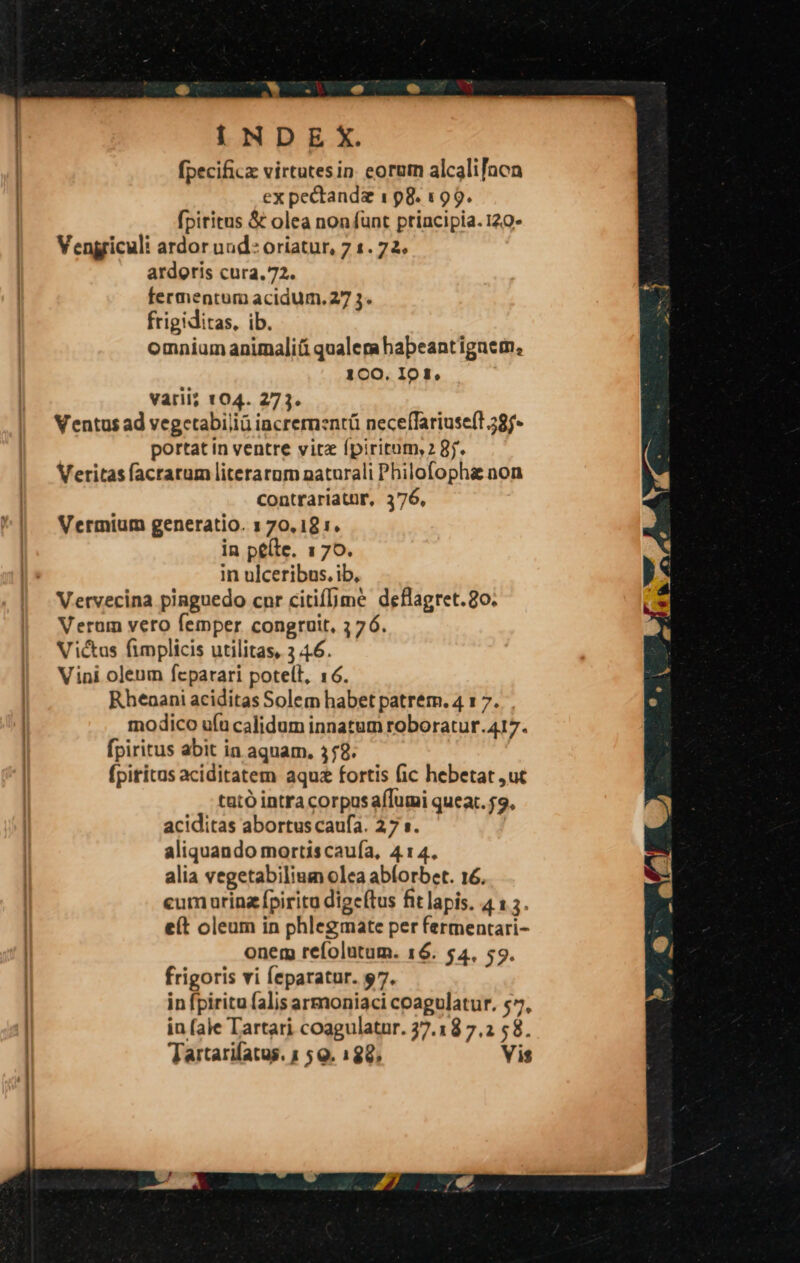 INDEX.
ſpecificæ virtutes in eorum alcali non
expectandæ 198. 199.
ſpiritus & olea non ſunt principia. 120.
Ventriculi ardor unde oriatur, 71. 72.
ardoris cura. 72.
fermentum acidum. 273.
frigiditas, ib.
omnium animaliũ qualem habeant ignem,
100. 101.
varii; 104. 273.
Ventus ad vegetabiliũ incrementũ neceſſarius eſt 385.
portat in ventre vitæ ſpiritum, 285.
Veritas ſacrarum literarum naturali Philoſophæ non
contrariatur, 376,
Vermium generatio. 170. 181.
in peſte. 170.
in ulceribus. ib,
Vervecina pinguedo cur citiſſimè deflagret. 80.
Verum vero ſemper congruit, 376.
Victus ſimplicis utilitas, 346.
Vini oleum ſeparari poteſt, 16.
Rhenani aciditas Solem habet patrem. 417.
modico uſu calidum innatum roboratur. 417.
ſpiritus abit in aquam, 358.
ſpiritus aciditatem aquæ fortis ſic hebetat, ut
tutò intra corpus aſſumi queat. 59.
aciditas abortus cauſa. 271.
aliquando mortis cauſa, 414.
alia vegetabilium olea abſorbet. 16.
cum urinæ ſpiritu digeſtus fit lapis. 413.
eſt oleum in phlegmate per fermentari-
onem reſolutum. 16. 54. 59.
frigoris vi ſeparatur. 97.
in ſpiritu ſalis armoniaci coagulatur. 57,
in ſale Tartari coagulatur. 37. 187. 258.
Tartariſatus. 159. 188,
Vis